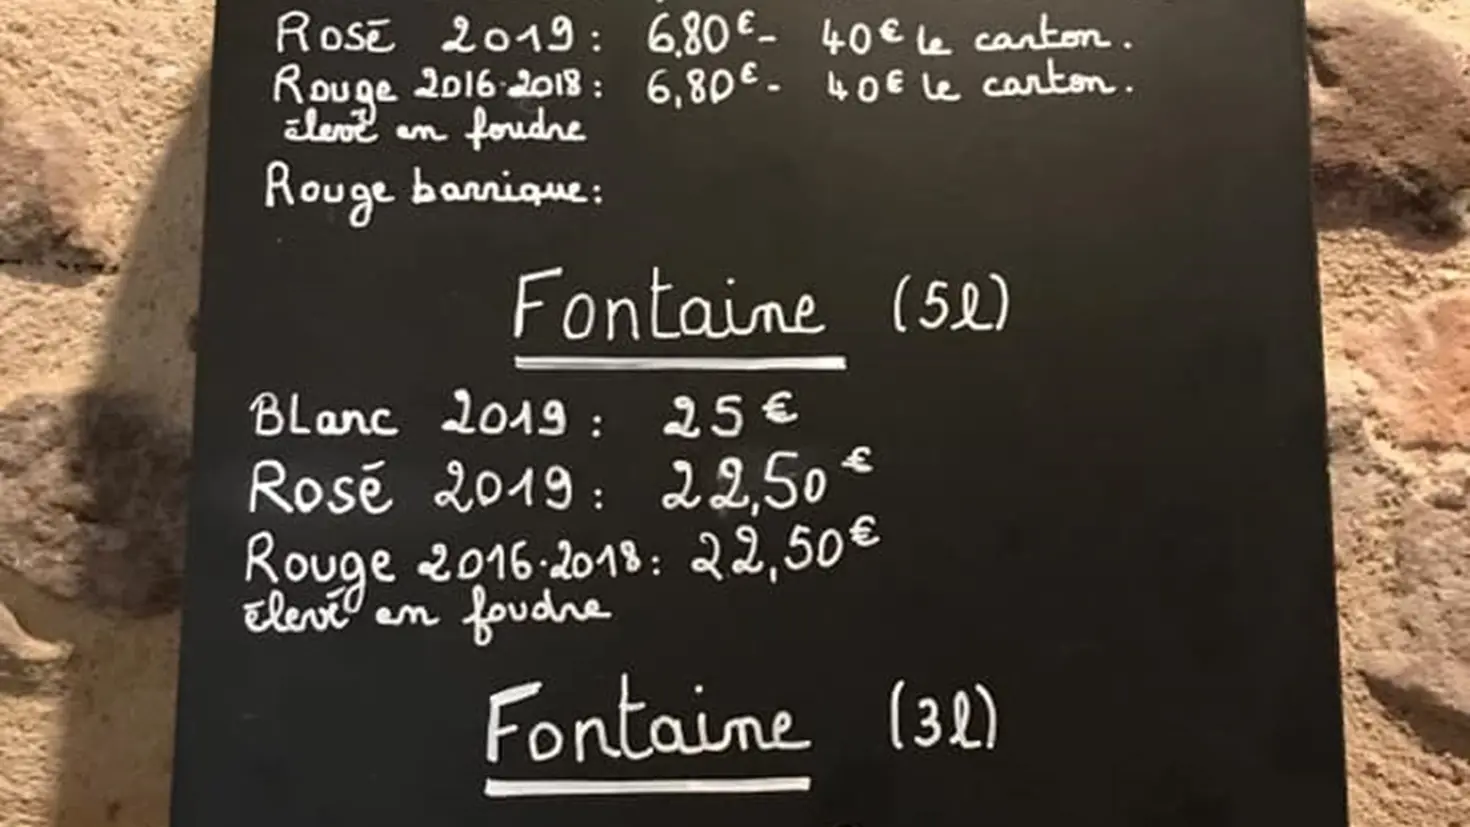 Rosé 2019: 6,80€- 40€ le carton.
Rouge 2016-2018: 6,80€- 40€ le carton.
élevé en foudre
Rouge barrique:
Fontaine (5l)
Blanc 2019: 25€
Rosé 2019: 22,50€
Rouge 2016-2018: 22,50€
élevé en foudre
Fontaine (3l)